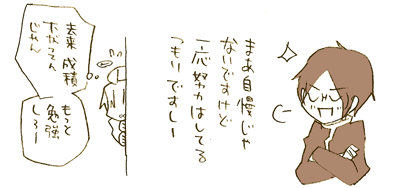 まあ自慢じゃ
ないですけど
一応努力はしてる
つもりですしー
去来 成積
下がってん
じゃん
もっと
勉強
しろー